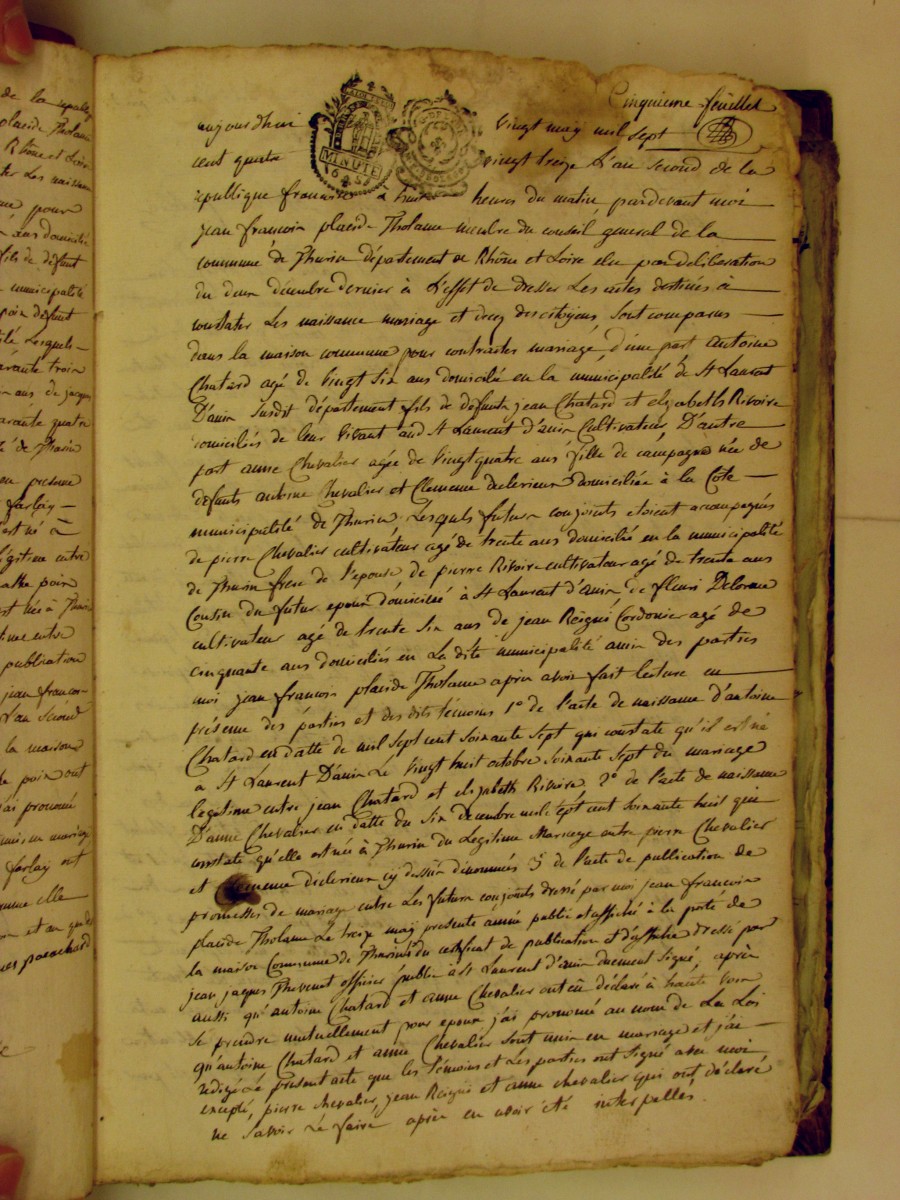 de la
placide Tholance
Rhône et Loire
ter les naissances
pour
ans domicilié
fils de défunt
municipalité
poin défunt
lesquels
trois
ans de jacques
quarante quatre
de Thurin
presence
farlay
est né à
légitime entre
poin
est née à Thurin
publication
jean francois
L'an second
la maison
poin ont
j'ai prononcé
unis en mariage
farlay ont
comme elle
Cinquieme feuillet
aujourdhui vingt may mil sept
cent quatre vingt treize L'an second de la
MINUTE
republique francaise à huit heures du matin pardevant moi
jean francois placide Tholance membre du conseil general de la
commune de Thurin département de Rhône et Loire elu par deliberation
du deux decembre dernier à L'effet de dresser Les actes destinés à
constater Les naissance mariage et decez des citoyens sont comparus
dans la maison commune pour contracter mariage, d'une part antoine
Chatard agé de vingt six ans domicilié en la municipalité de St Laurent
D'anin susdit département fils de defunts jean Chatard et elizabeth Rivoire
domiciliés de leur vivant aud St Laurent d'anin Cultivateur D'autre
part anne Chevalier agée de vingt quatre ans fille de campagne née de
defunts antoine Chevalier et Clemence declerieux domiciliée à la Cote
municipalité de Thurin Lesquels futurs conjoints etoient accompagnés
de pierre Chevalier cultivateur agé de trente ans domicilié en la municipalité
de Thurin frere de l'epouse de pierre Rivoire cultivateur agé de trente ans
Cousin du futur epoux domicilié à St Laurent d'anin de fleuri Delorme
cultivateur agé de trente six ans de jean Reigné Cordonier agé de
cinquante ans domiciliés en La dite municipalité amis des parties
moi jean francois placide Tholance après avoir fait lecture en
présence des parties et des dits témoins 1° de l'acte de naissance d'antoine
Chatard en datte de mil sept cent soixante sept qui constate qu'il est né
a St Laurent D'anin Le vingt huit octobre soixante sept du mariage
legitime entre jean Chatard et elizabeth Rivoire, 2° de l'acte de naissance
D'anne Chevalier en datte du six decembre mil sept cent soixante huit qui
constate qu'elle est née à Thurin du Legitime Mariage entre pierre Chevalier
et Clemence declerieux cy dessus denommés 3° de l'acte de publication de
promesses de mariage entre Les futurs conjoints dressé par moi jean francois
placide Tholance Le treize may presente année publié et affiché à la porte de
la maison Commune de Thurin du certificat de publication et d'affiche dressé par
jean jacques Thevenet officier public à St Laurent d'anin duement signé, après
aussi qu'antoine Chatard et anne Chevalier ont eu déclaré à haute voix
se prendre mutuellement pour epoux j'ai prononcé au nom de La Loi
qu'antoine Chatard et anne Chevalier sont unis en mariage et j'ai
redigé Le présent acte que les témoins et Les parties ont signé avec moi
excepté, pierre chevalier, jean Reigné et anne chevalier qui ont déclaré
ne savoir Le faire après en avoir été interpellés.